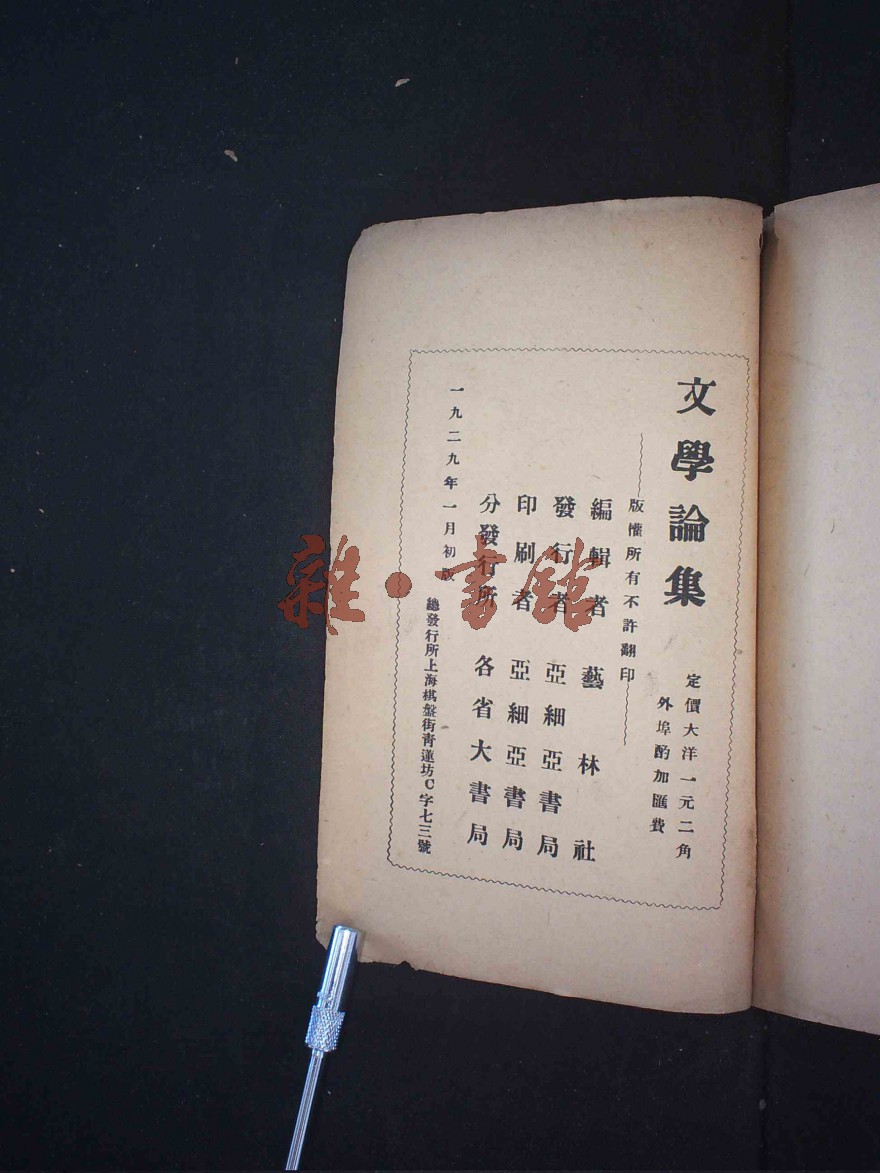 文學論集
定價大洋一元二角
外埠酌加匯費
版權所有不許翻印
編輯者 藝林社
發行者 亞細亞書局
印刷者 亞細亞書局
分發行所 各省大書局
一九二九年一月初版
總發行所上海棋盤街青蓮坊C字七三號
雜·書館